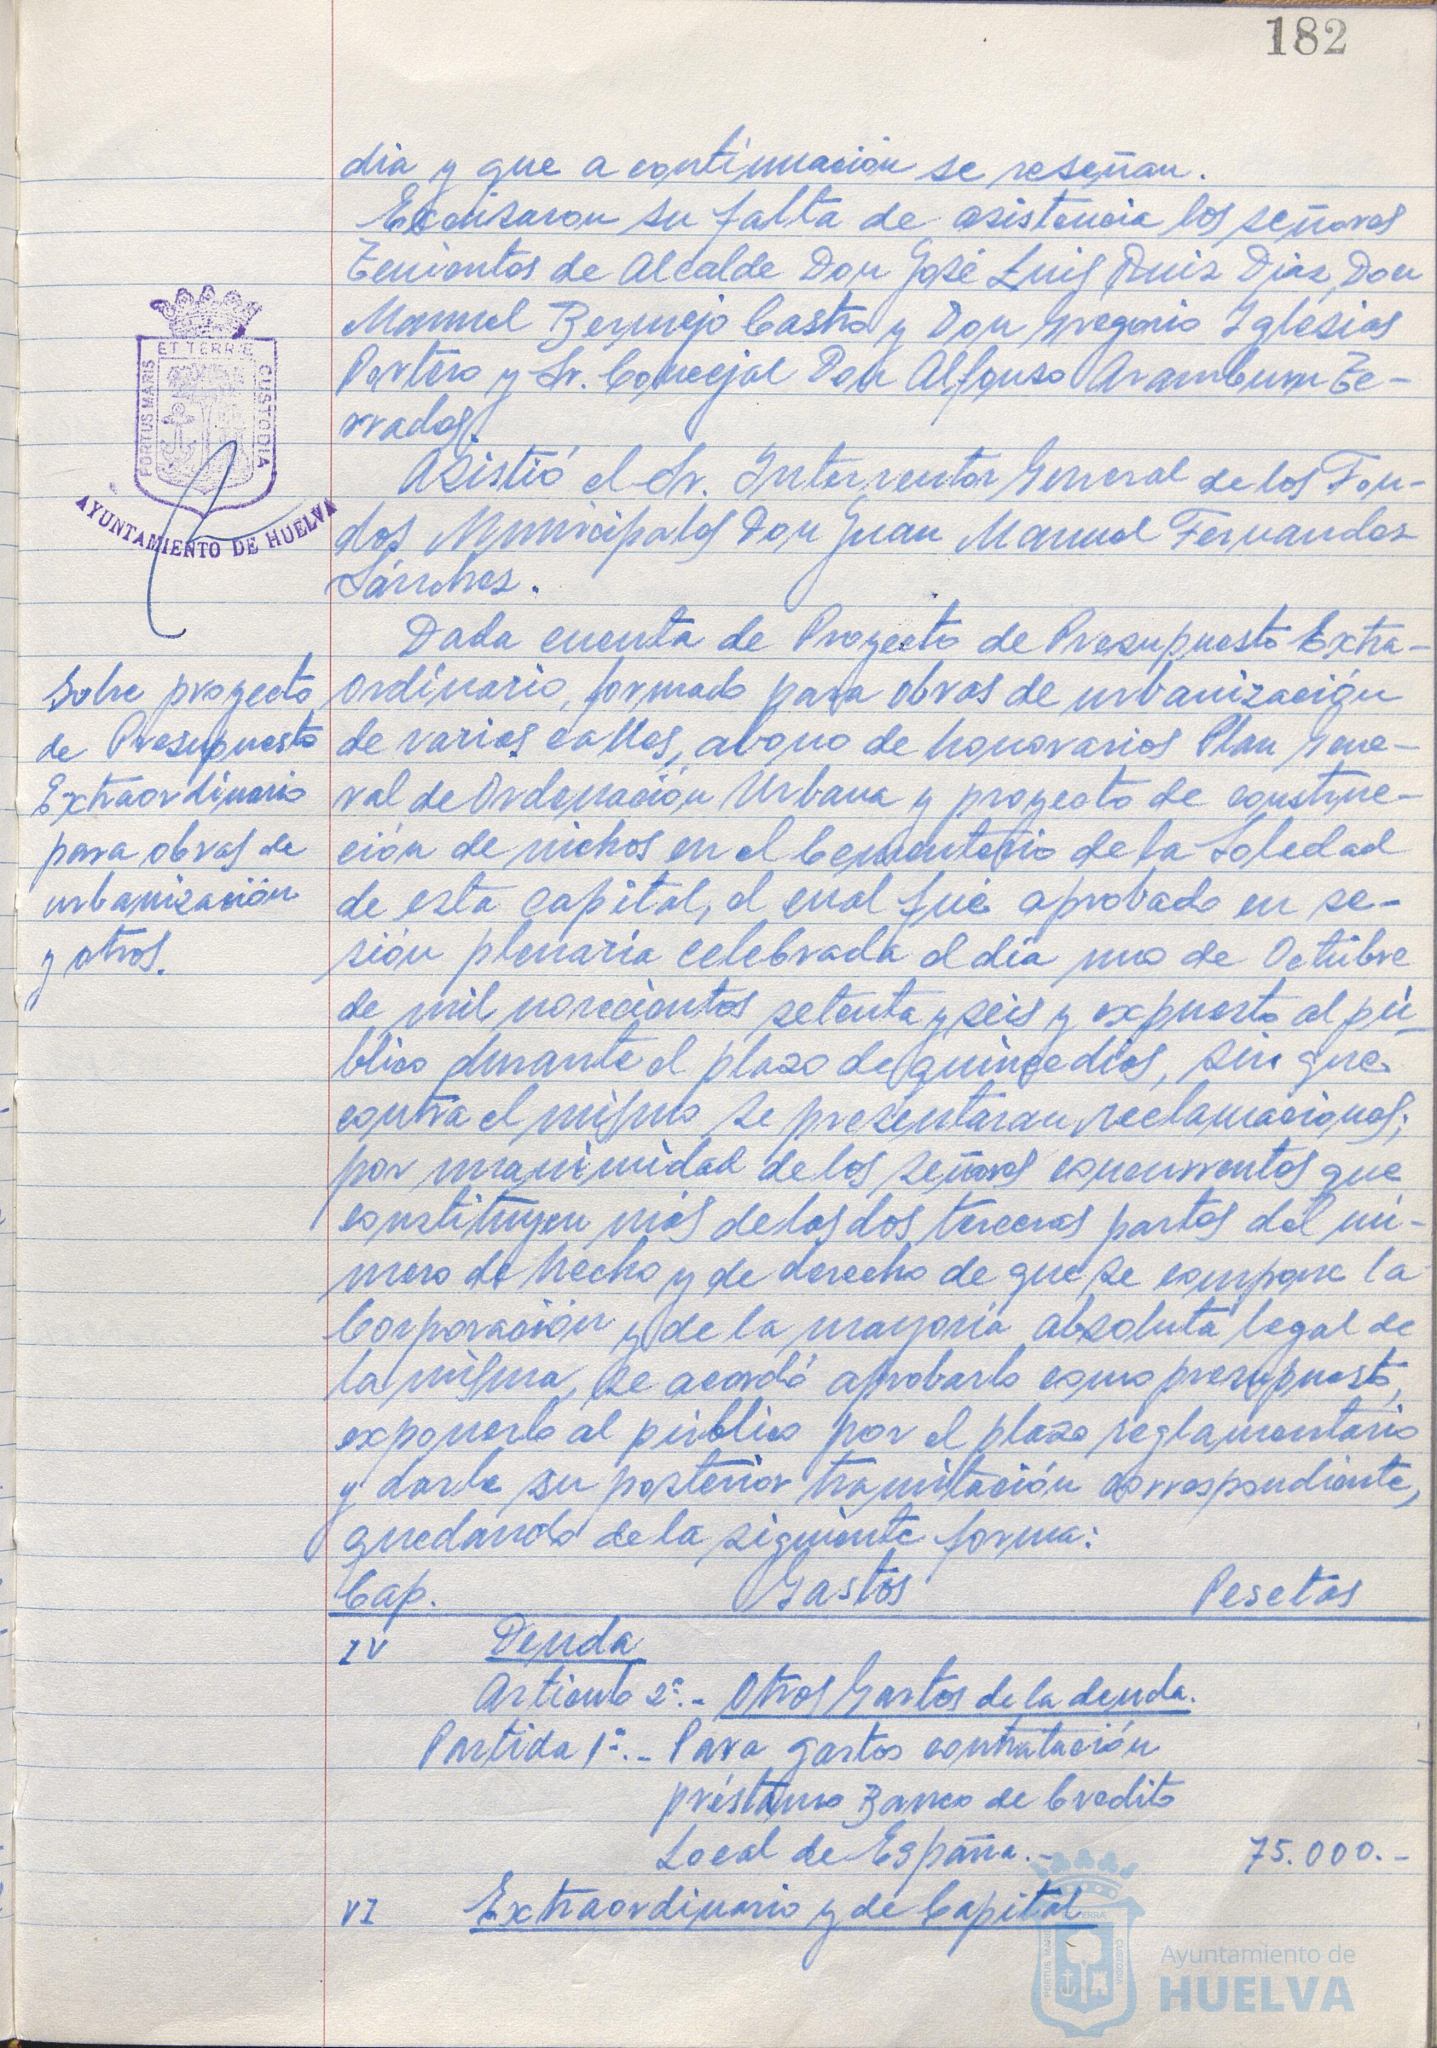 182
dia y que a continuación se reseñan.
Excusaron su falta de asistencia los señores
Tenientes de Alcalde Don José Luis Ruiz Diaz, Don
Manuel Bermejo Castro y Don Gregorio Iglesias
Portero y Sr. Concejal Don Alfonso Aramburu Te-
rrados.
Asistió el Sr. Interventor General de los Fon-
dos Municipales Don Juan Manuel Fernandez
Sánchez.
ET TERRÆ
PORTUS MARIS
CUSTODIA
AYUNTAMIENTO DE HUELVA
Sobre proyecto
de Presupuesto
Extraordinario
para obras de
urbanización
y otros.
Dada cuenta de Proyecto de Presupuesto Extra-
ordinario, formado para obras de urbanización
de varias calles, abono de honorarios Plan Gene-
ral de Ordenación Urbana y proyecto de construc-
ción de nichos en el Cementerio de la Soledad
de esta capital, el cual fué aprobado en se-
sión plenaria celebrada el día uno de Octubre
de mil novecientos setenta y seis y expuesto al pú-
blico durante el plazo de quince dias, sin que
contra el mismo se presentaran reclamaciones;
por unanimidad de los señores concurrentes que
constituyen más de las dos terceras partes del nú-
mero de hecho y de derecho de que se compone la
Corporación y de la mayoría absoluta legal de
la misma, se acordó aprobarlo como presupuesto,
exponerlo al público por el plazo reglamentario
y darle su posterior tramitación correspondiente,
quedando de la siguiente forma:
Cap. Gastos Pesetas
IV Deuda
Articulo 2º.- Otros Gastos de la deuda.
Partida 1ª.- Para gastos contratación
préstamo Banco de Credito
Local de España.- 75.000.-
VI Extraordinario y de Capital
Ayuntamiento de
HUELVA